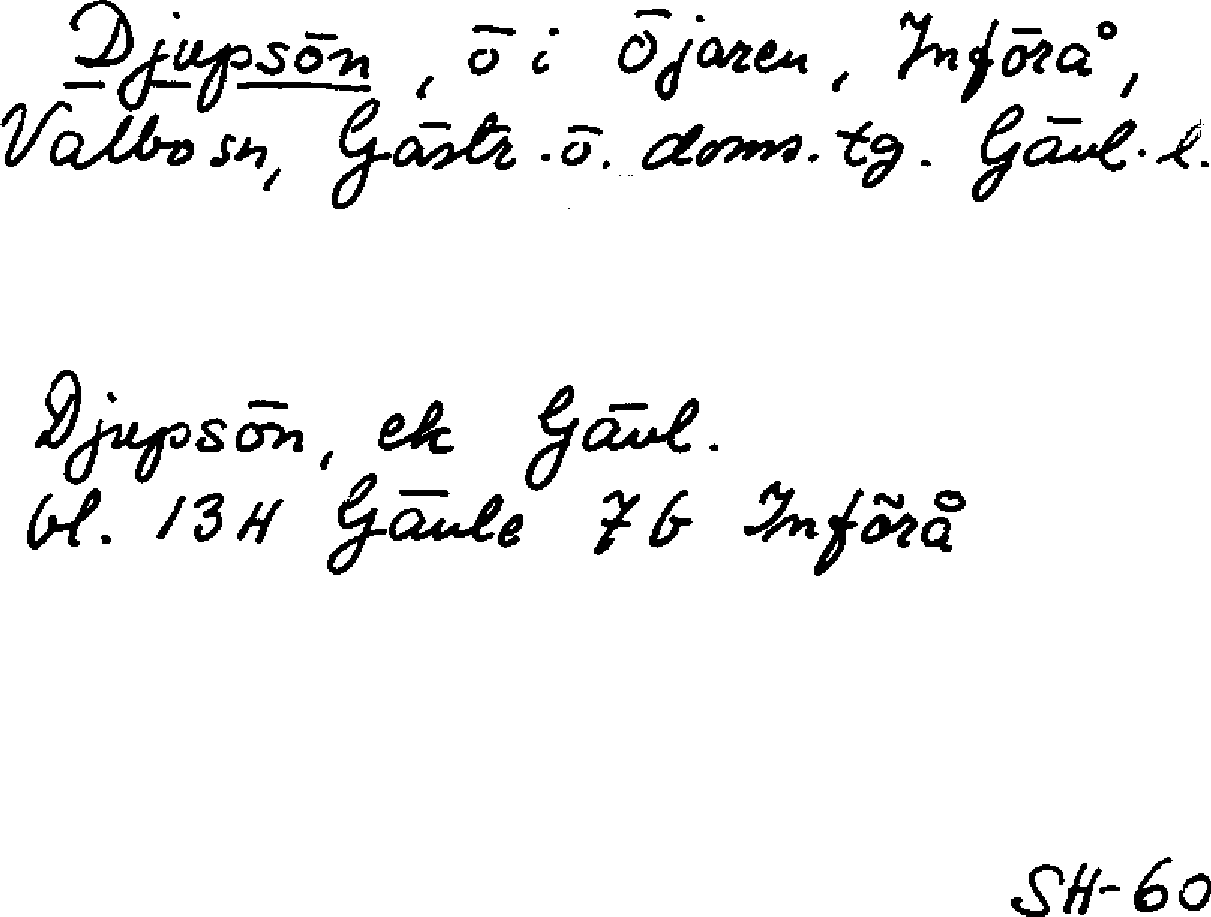 Djupsön, ö i Öjaren, Införå,
Valbo sn, Gästr. ö. doms. tg. Gävl. l.
Djupsön, ek Gävl.
bl. 13H Gävle 7b Införå
SH-60